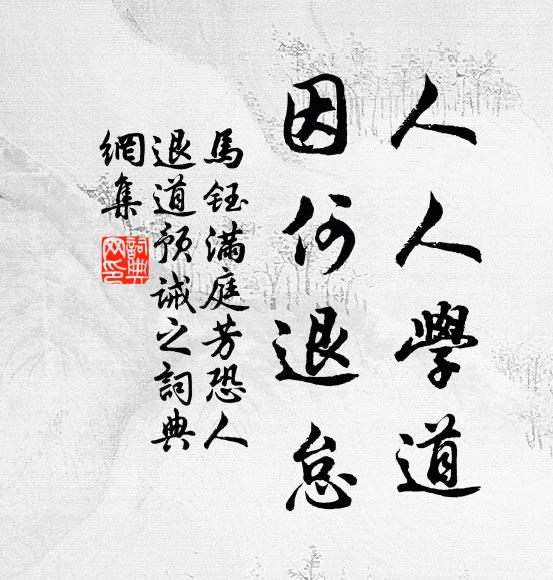 人人學道
因何退怠
馬鈺滿庭芳恐人
退道預誡之詞典
網集
詞典網印